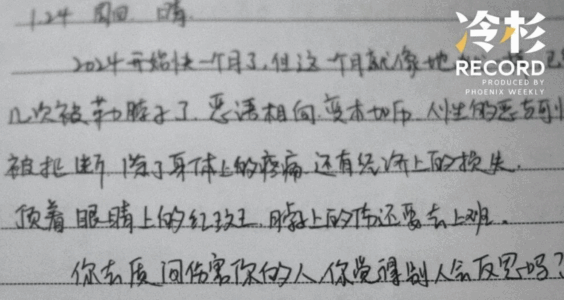 1.24 周四 晴
冷杉
RECORD
PRODUCED BY
PHOENIX WEEKLY
2024开始快一个月了,但这一个月就像地
几次被勒脖子了 恶语相向 变本加厉 人性的恶
被 断 除了身体上的疼痛 还有经济上的损失.
顶着眼睛上的红斑 脖上的伤还要去上班。
你去质问伤害你的人 你觉得别人会反思吗?